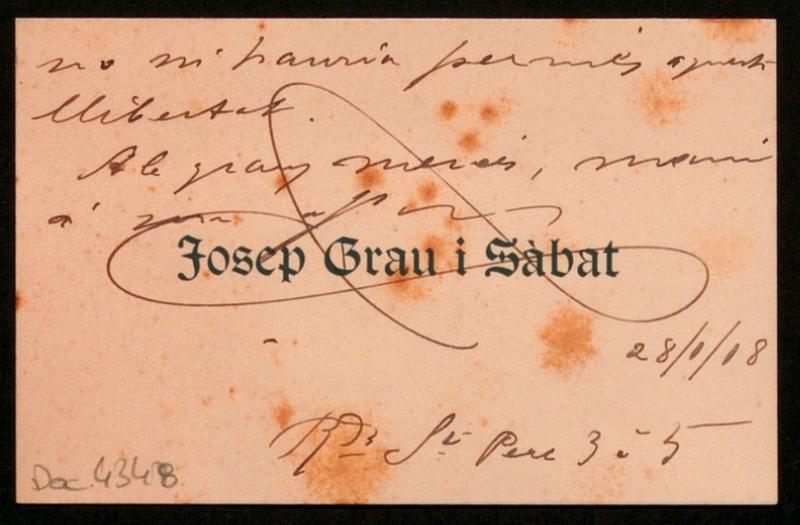 no m'hauria permés aquesta
llibertat.
Ab grans mercés, mani
á
Josep Grau i Sàbat
28/1/08
Rda St Pere 3 i 5
Doc 4348